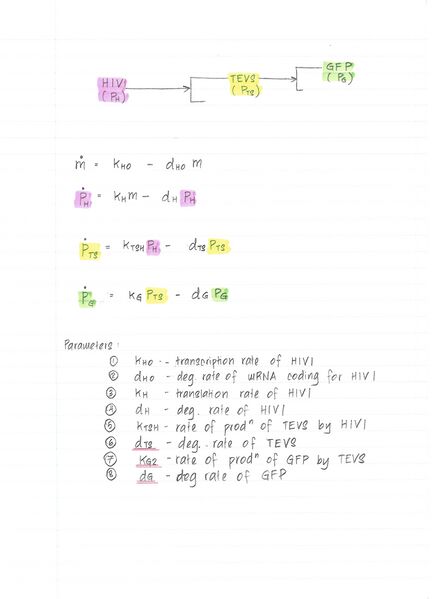 HIV1 (PH) TEVS (PTS) GFP (PG)
ṁ = KHO - dHO m
ṖH = KHm - dH PH
ṖTS = KTSH PH - dTS PTS
ṖG = KG PTS - dG PG
Parameters :
① KHO - transcription rate of HIV1
② dHO - deg. rate of mRNA coding for HIV1
③ KH - translation rate of HIV1
④ dH - deg. rate of HIV1
⑤ KTSH - rate of prodⁿ of TEVS by HIV1
⑥ dTS - deg. rate of TEVS
⑦ KG2 - rate of prodⁿ of GFP by TEVS
⑧ dG - deg rate of GFP